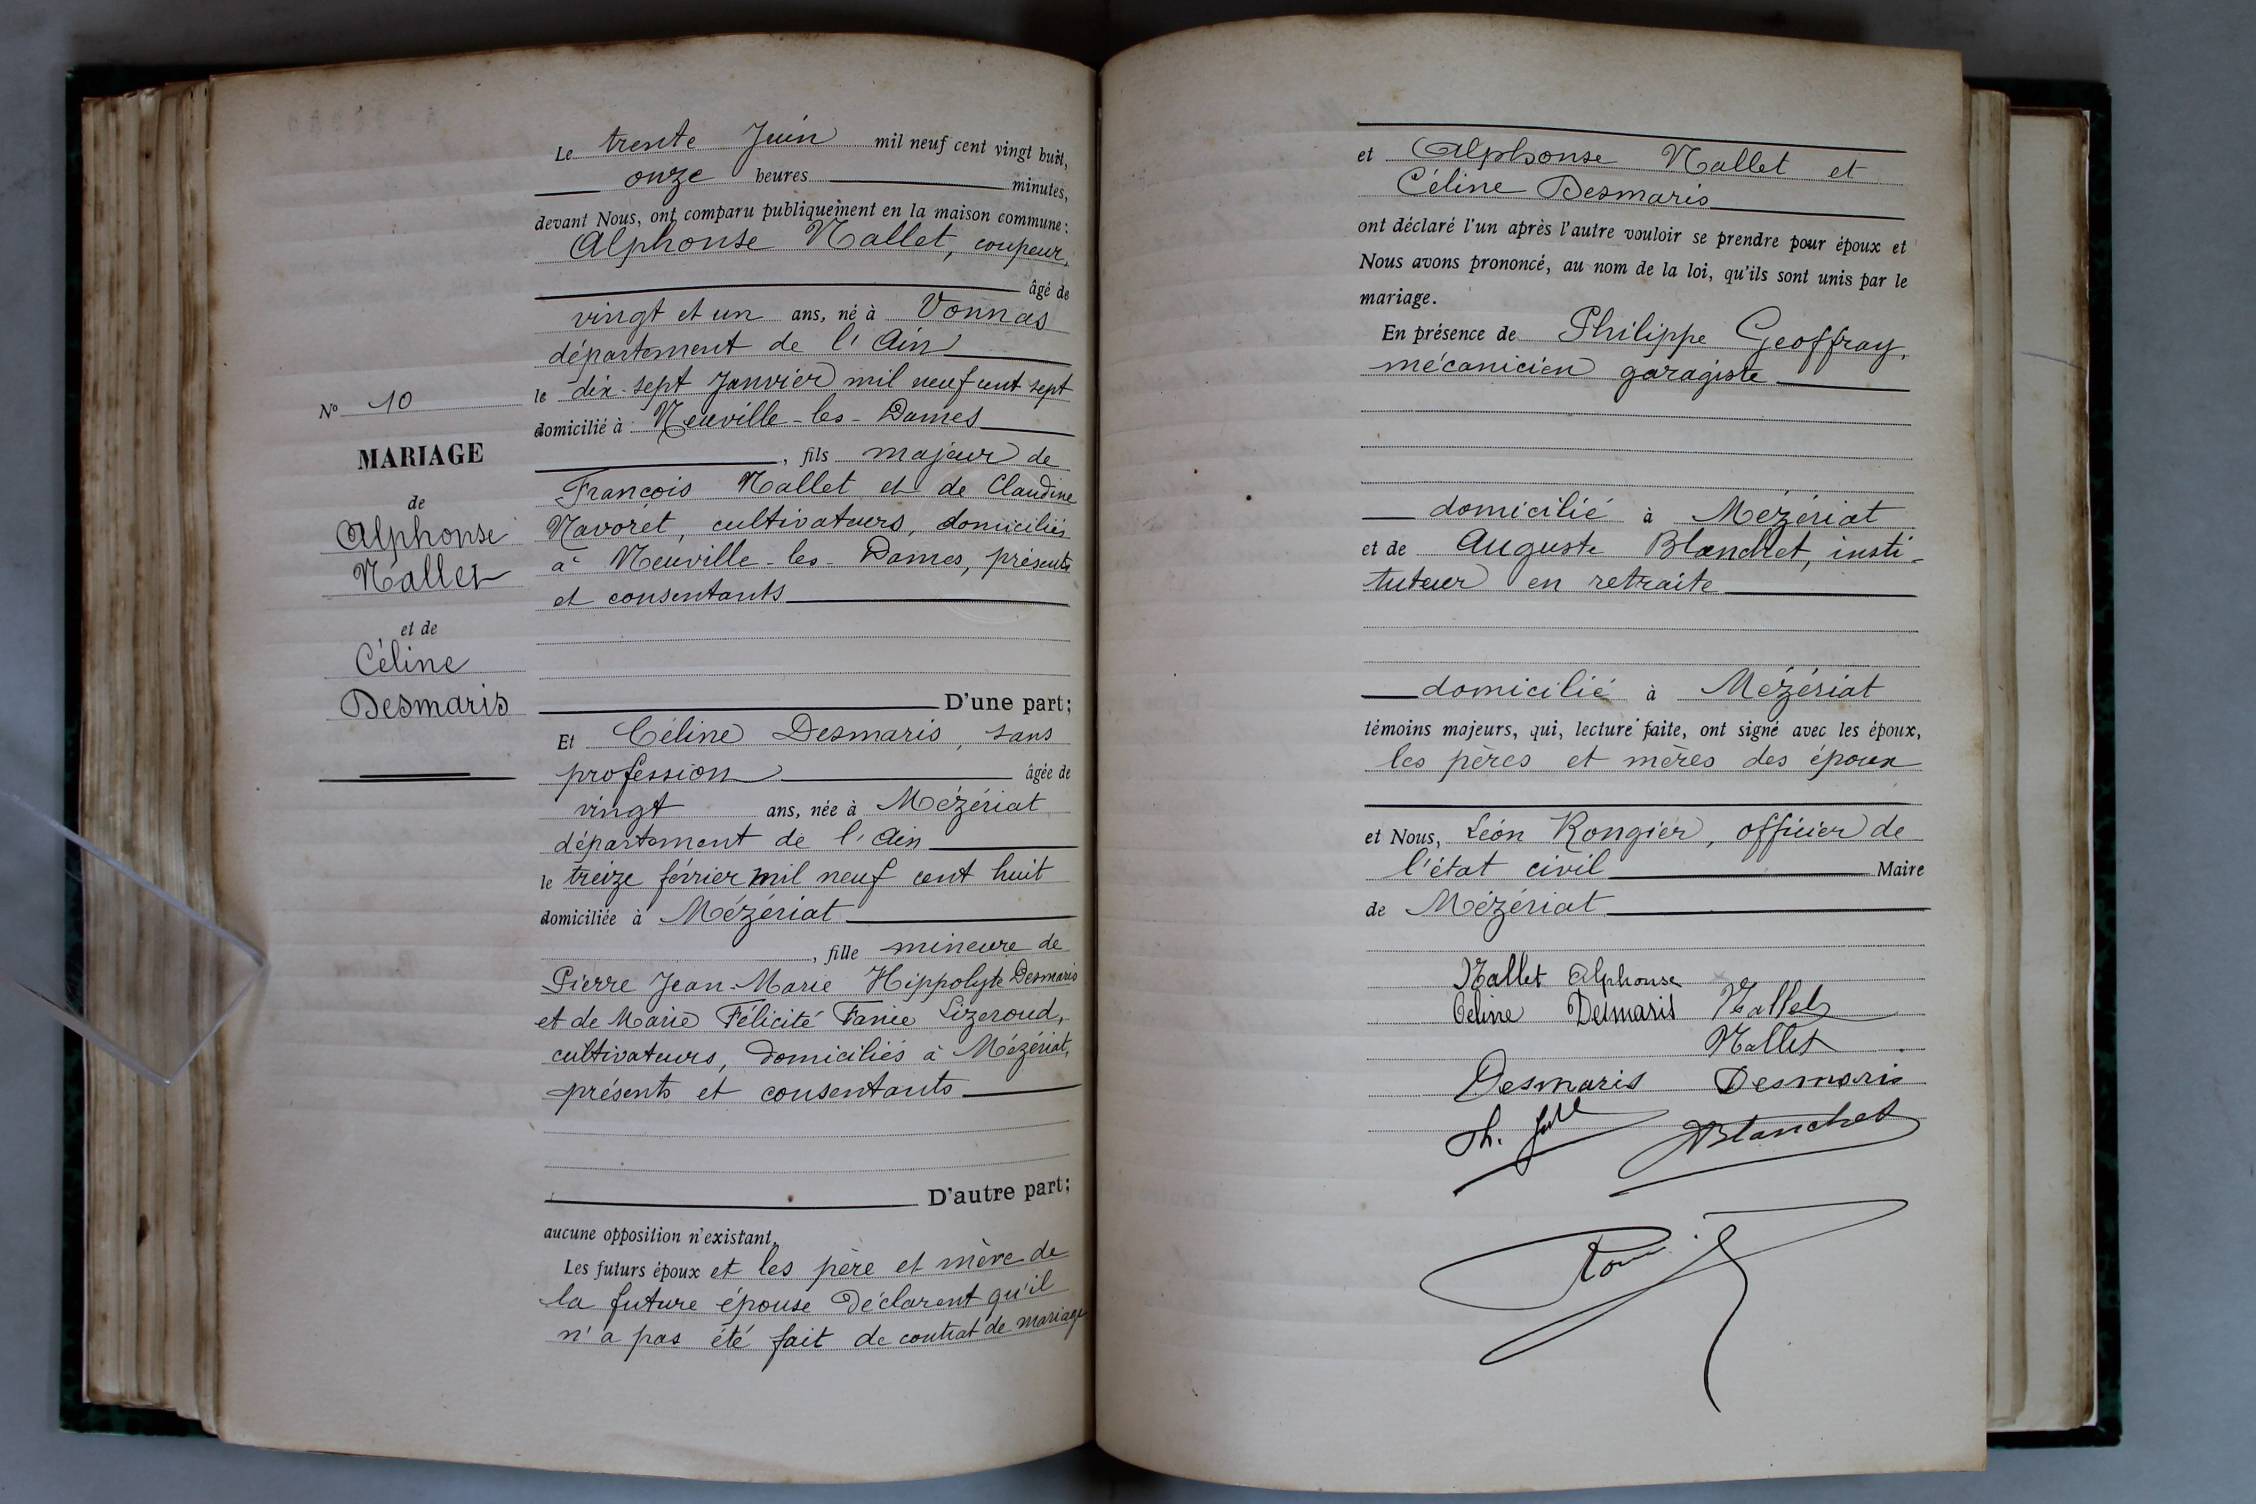 Le trente Juin mil neuf cent vingt huit,
onze heures minutes,
devant Nous, ont comparu publiquement en la maison commune:
Alphonse Nallet, coupeur,
âgé de
vingt et un ans, né à Vonnas
département de l'Ain
le dix-sept Janvier mil neuf cent sept
domicilié à Neuville-les-Dames
, fils majeur de
François Nallet et de Claudine
Navoret, cultivateurs, domiciliés
à Neuville-les-Dames, présents
et consentants
D'une part;
Nº 10
MARIAGE
de
Alphonse
Nallet
et de
Céline
Desmaris
Et Céline Desmaris, sans
profession âgée de
vingt ans, née à Mézériat
département de l'Ain
le treize février mil neuf cent huit
domiciliée à Mézériat
, fille mineure de
Pierre Jean-Marie Hippolyte Desmaris
et de Marie Félicité Fanie Lizeroud,
cultivateurs, domiciliés à Mézériat,
présents et consentants
D'autre part;
aucune opposition n'existant,
Les futurs époux et les père et mère de
la future épouse déclarent qu'il
n'a pas été fait de contrat de mariage
et Alphonse Nallet et
Céline Desmaris
ont déclaré l'un après l'autre vouloir se prendre pour époux et
Nous avons prononcé, au nom de la loi, qu'ils sont unis par le
mariage.
En présence de Philippe Geoffray,
mécanicien garagiste
domicilié à Mézériat
et de Auguste Blanchet, insti-
tuteur en retraite
domicilié à Mézériat
témoins majeurs, qui, lecture faite, ont signé avec les époux,
les pères et mères des époux
et Nous, Léon Rongier, officier de
l'état civil Maire
de Mézériat
Nallet Alphonse
Céline Desmaris Nallet
Nallet
Desmaris Desmaris
Blanchet